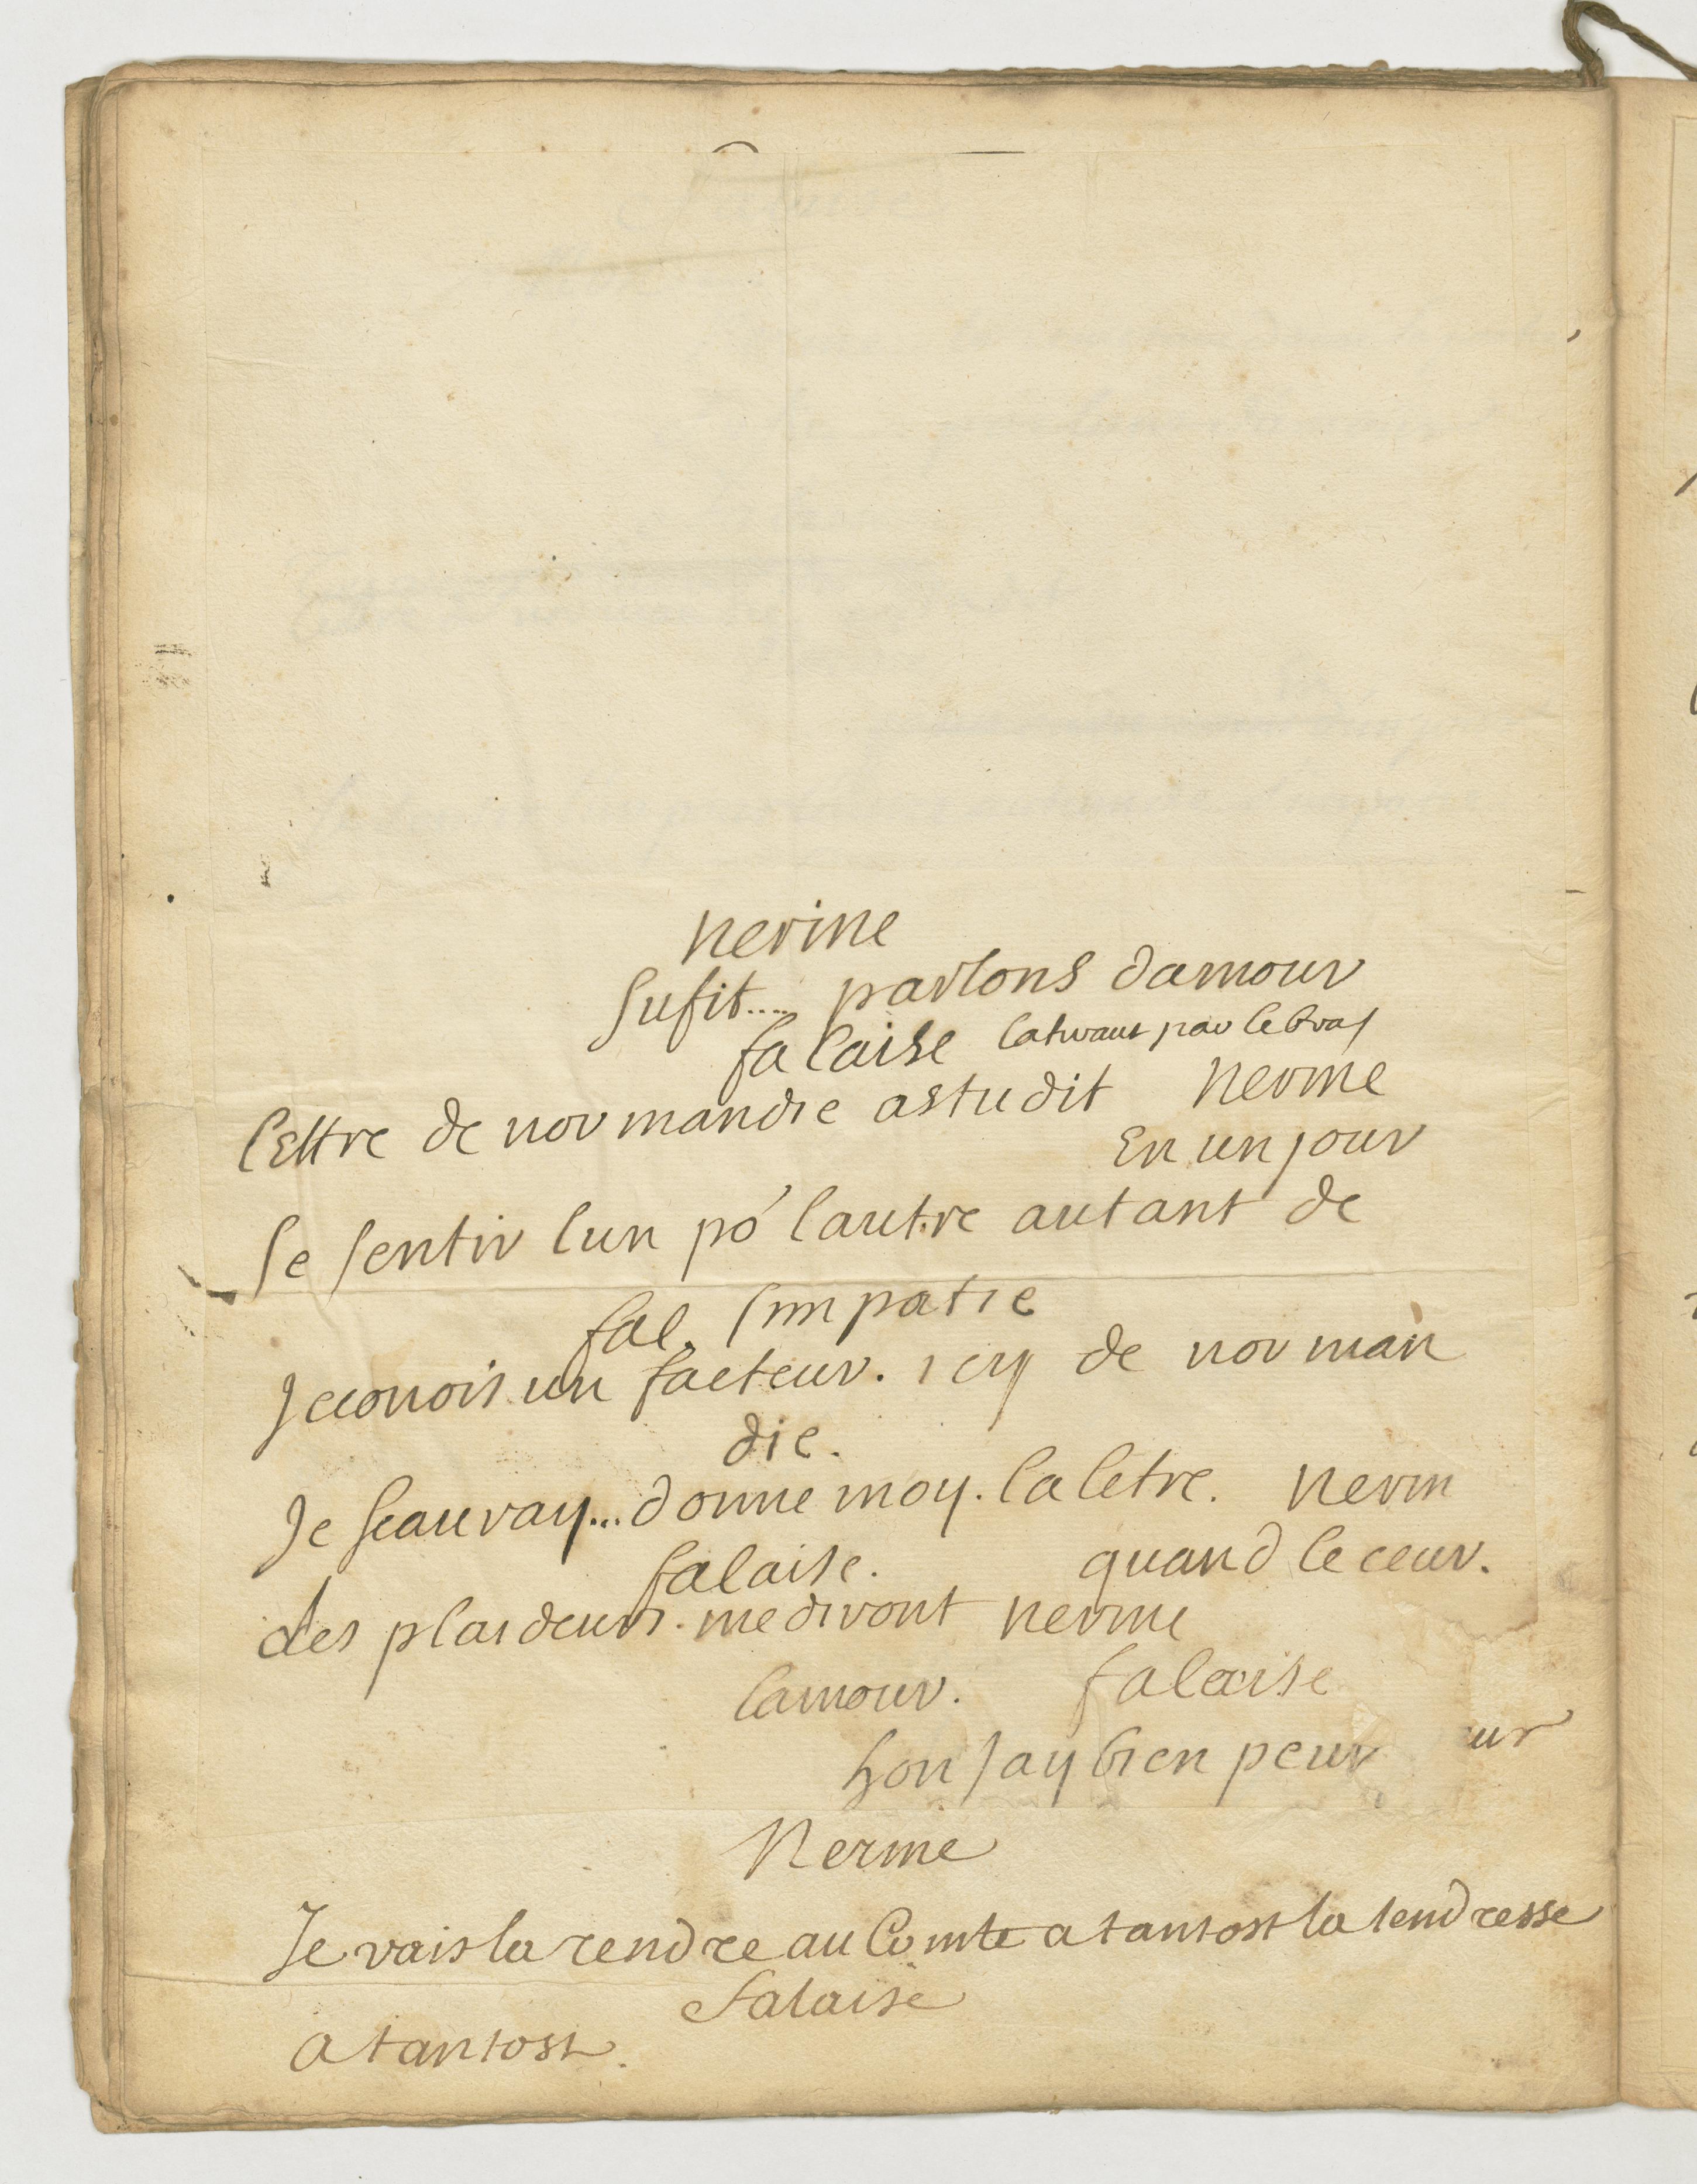 nerine
sufit.... parlons damour
falaise latirant par le bras
lettre de normandie astu dit nerine
en un jour
se sentir lun po' lautre autant de
fal. simpatie
je conois un facteur. icy de norman
die.
Je scauray... donne moy. la letre. nerin
falaise. quand le ceur.
des plaideurs. me diront nerine
lamour. falaise
hon jay bien peur ur
Nerine
Je vais la rendre au Comte a tantost la tendresse
falaise
a tantost.